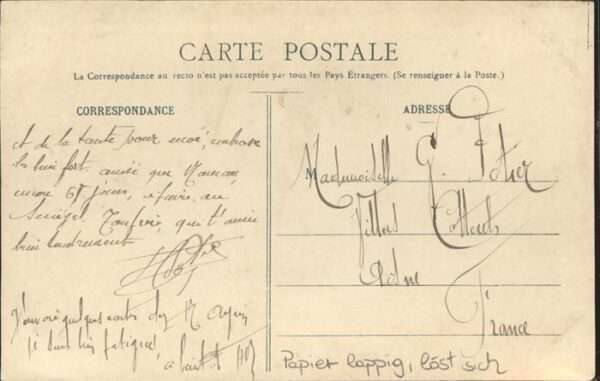 CARTE POSTALE
La Correspondance au recto n'est pas acceptée par tous les Pays Étrangers. (Se renseigner à la Poste.)
CORRESPONDANCE
et de la tante pour moi, embrasse
les bien fort, ainsi que Maman,
encore 65 jours, à faire, au
Sénégal, qui t'aime
bien tendrement
J'envoie quelques cartes
suis bien fatigué, à bientôt
ADRESSE
Mademoiselle G. Potier
Villers Cotterets
Aisne
France
Papier lappig, löst sich